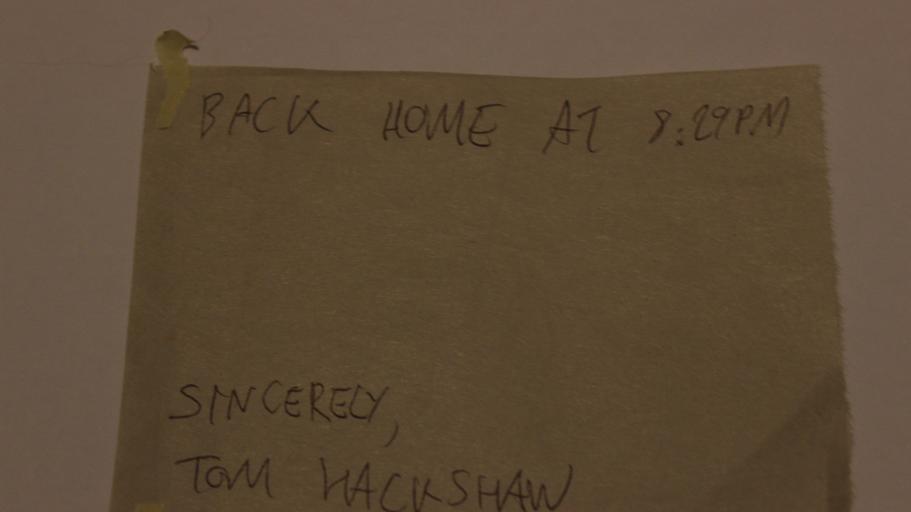 BACK HOME AT 8:29PM
SINCERELY,
TOM HACKSHAW